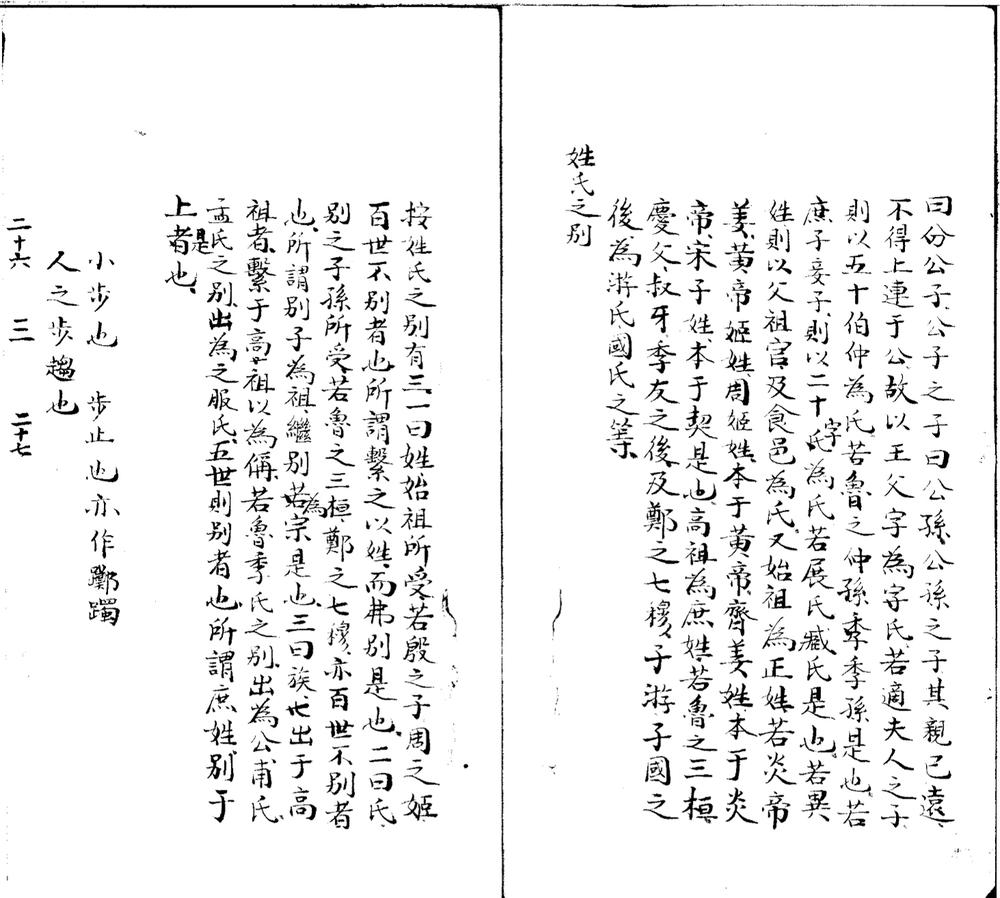 曰公公子公子之子曰公孫公孫之子其親已遠
不得上連于公故以王父字為字氏若適夫人之子
則以五十伯仲為氏若魯之仲孫季季孫是也若
庶子妾子則以二十字氏為氏若展氏臧氏是也若異
姓則以父祖官及食邑為氏又始祖為正姓若炎帝
姜黃帝姬姓周姬姓本于黃帝齊姜姓本于炎
帝宋子姓本于契是也高祖為庶姓若魯之三桓
慶父叔牙季友之後及鄭之七穆子游子國之
後為游氏國氏之等
姓氏之別
按姓氏之別有三一曰姓始祖所受若殷之子周之姬
百世不別者也所謂繫之以姓而弗別是也二曰氏
別之子孫所受若魯之三桓鄭之七穆亦百世不別者
也所謂別子為祖繼別若為宗是也三曰族世出于高
祖者繫于高祖以為偁若魯季氏之別出為公甫氏
孟氏之別出為之服氏五世則別者也所謂庶姓別于
上者是也
小步也 步止也亦作躑躅
人之步趨也
二十六 三 二十七